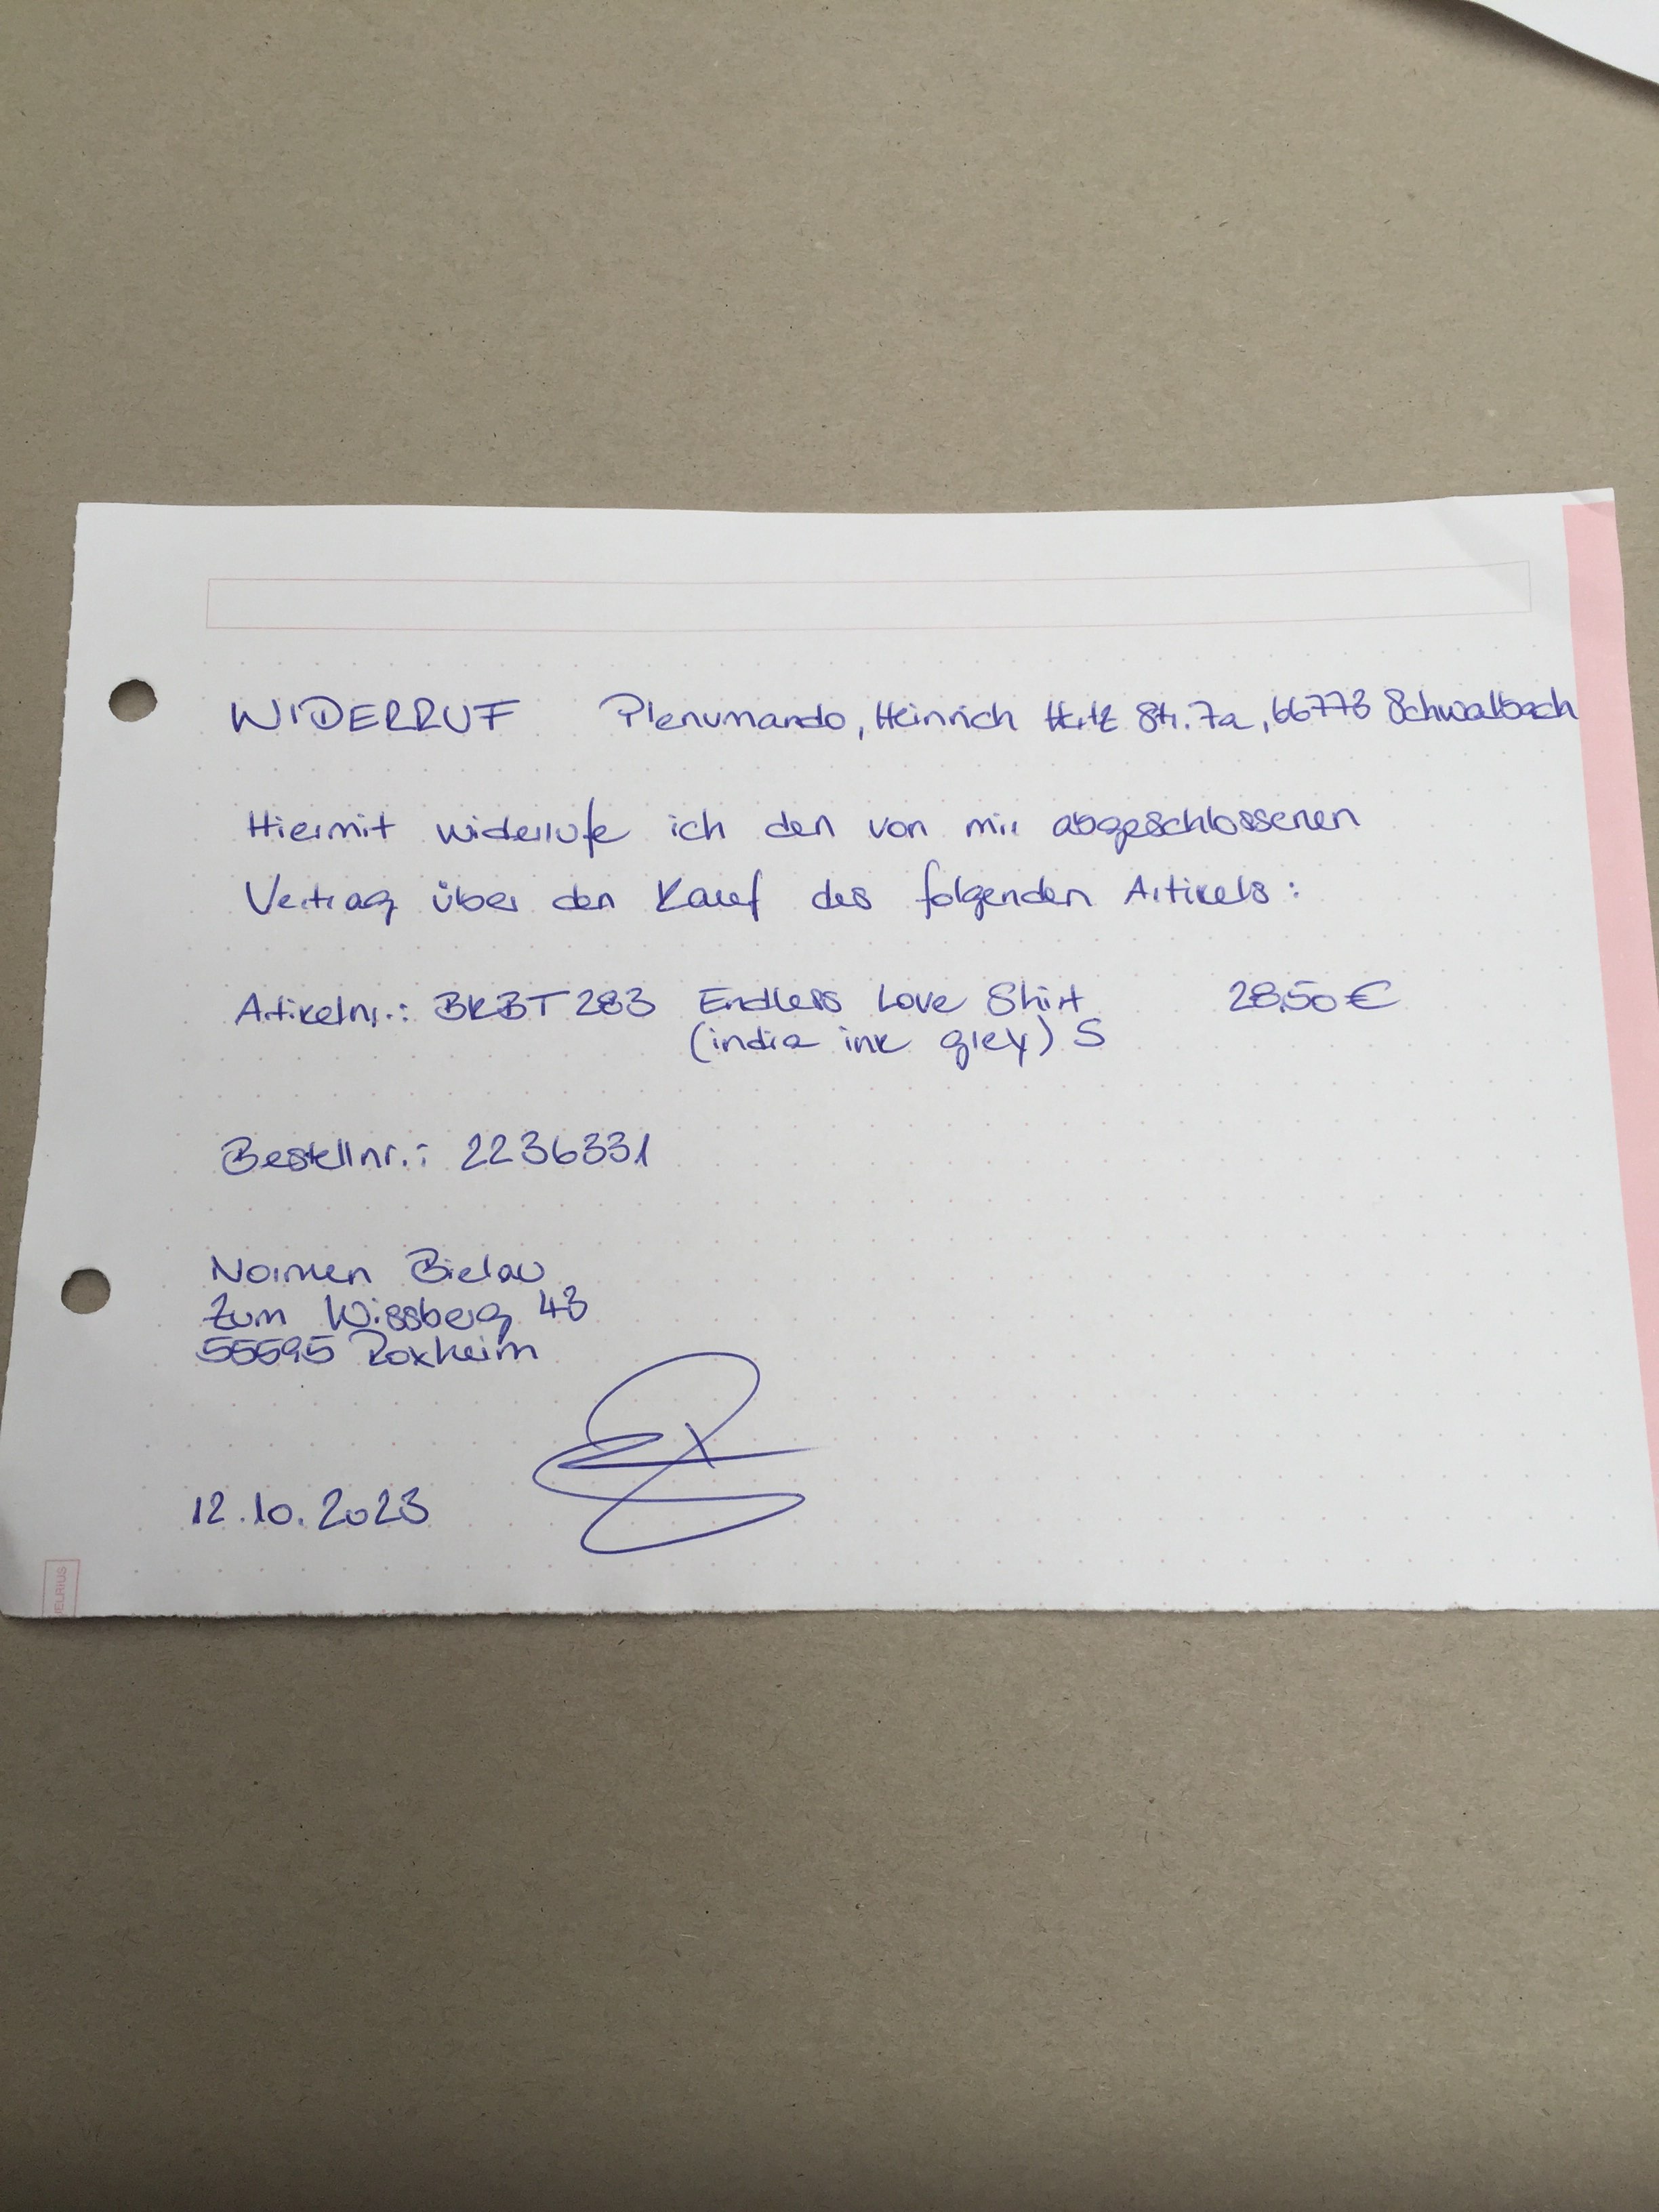 WIDERRUF Plenumando, Heinrich Hertz Str. 7a, 66773 Schwalbach
Hiermit widerrufe ich den von mir abgeschlossenen
Vertrag über den Kauf des folgenden Artikels:
Artikelnr.: BKBT283 Endless Love Shirt 28,50 €
(india ink grey) S
Bestellnr.: 2236331
Normen Bielau
Zum Wissberg 43
55595 Roxheim
12.10.2023